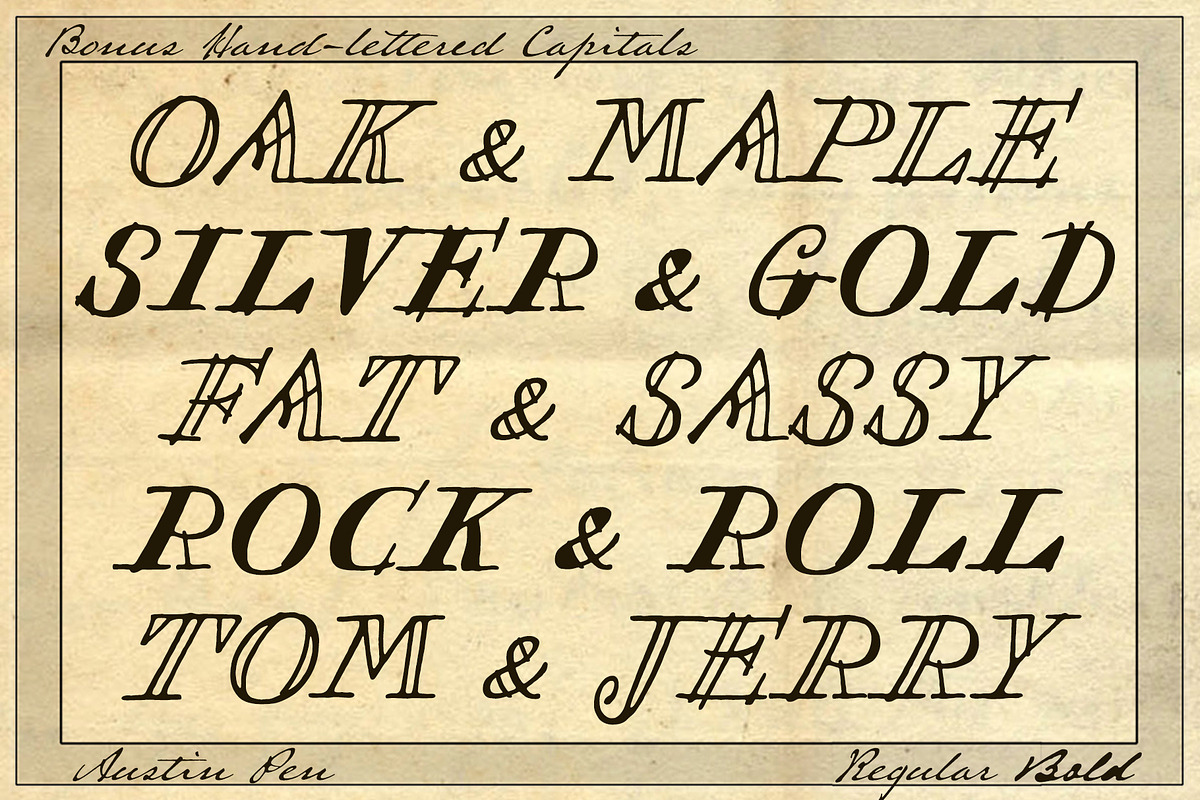 Bonus Hand-lettered Capitals
OAK & MAPLE
SILVER & GOLD
FAT & SASSY
ROCK & ROLL
TOM & JERRY
Austin Pen
Regular Bold